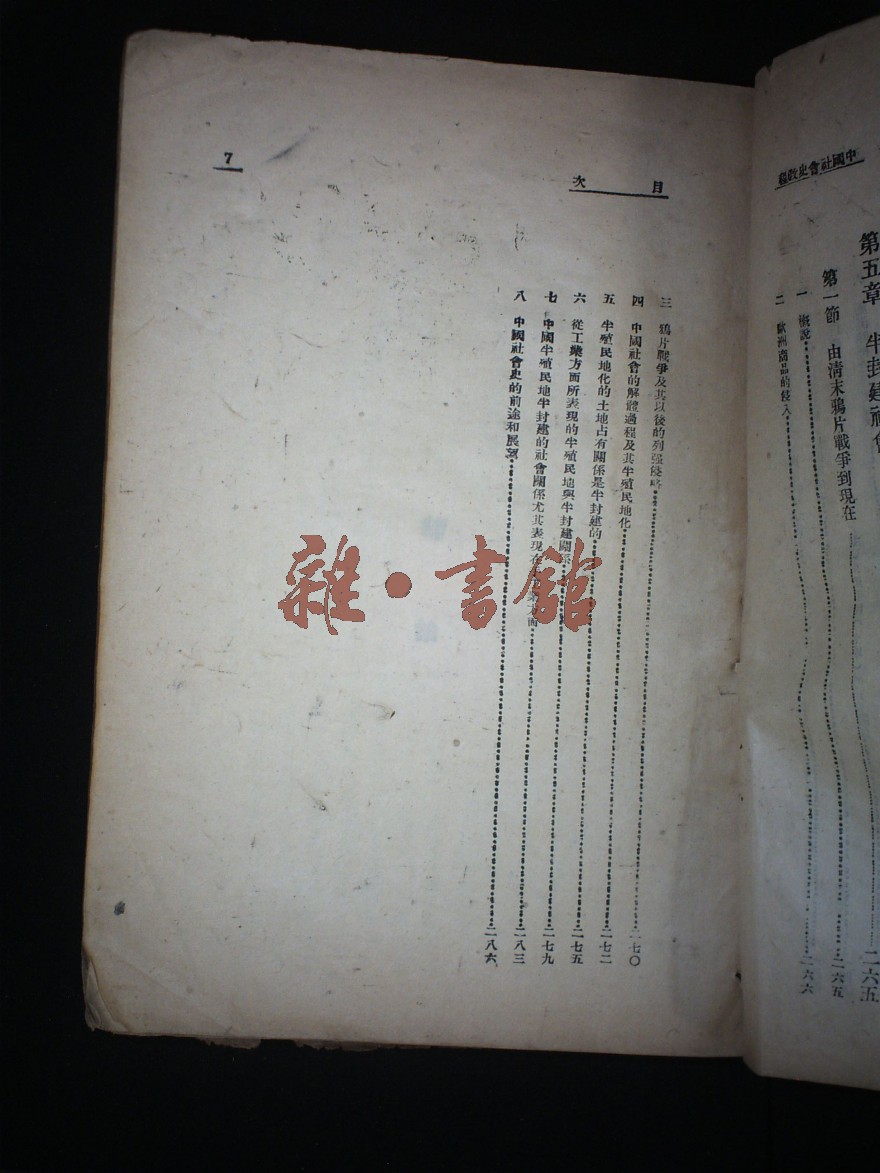 中國社會史教程
第五章 半封建社會 二六五
第一節 由清末鴉片戰爭到現在 二六五
一 概說 二六六
二 歐洲商品的侵入
目次
7
三 鴉片戰爭及其以後的列强侵略 二七〇
四 中國社會的解體過程及其半殖民地化 二七二
五 半殖民地化的土地占有關係是半封建的 二七五
六 從工業方面所表現的半殖民地與半封建關係 二七九
七 中國半殖民地半封建的社會關係尤其表現在 面 二八三
八 中國社會史的前途和展望 二八六
雜·書館